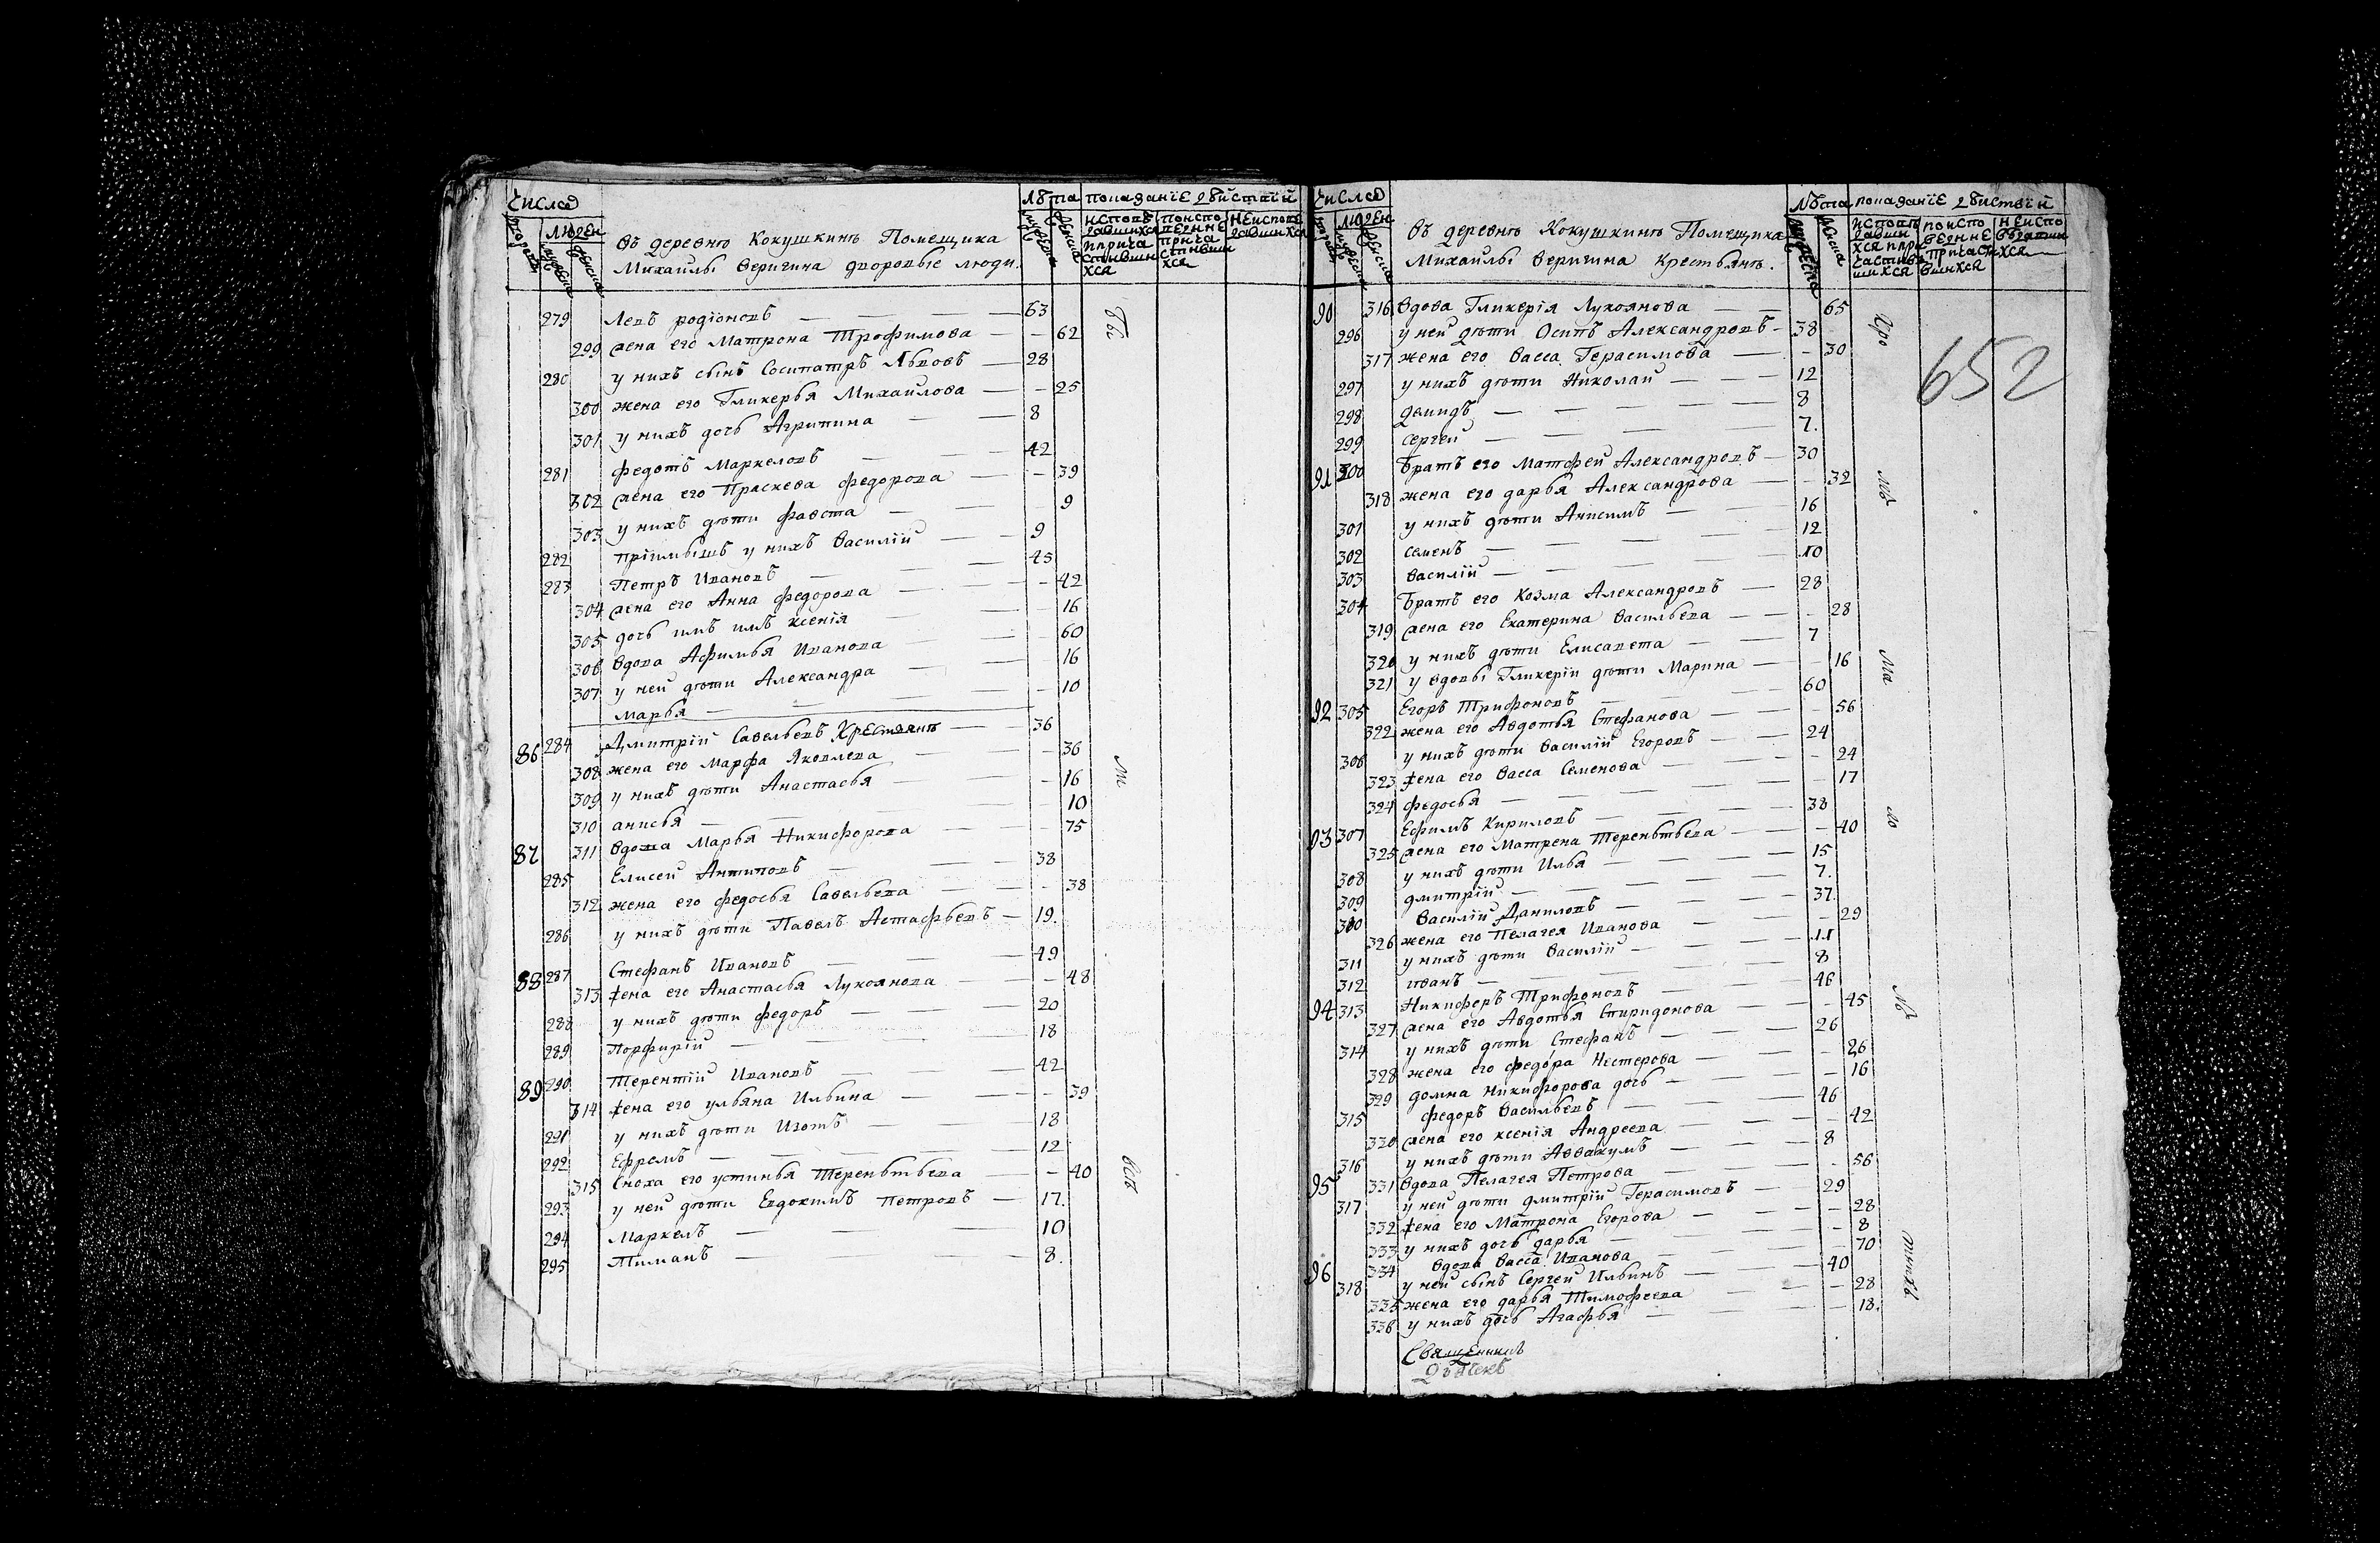 Число
людей
въ деревнѣ Кокушкинѣ Помещика
Михаилы Веригина дворовые люди
лѣта
показанїе дѣйствїй
279 Левъ родїоновъ — 63
299 жена его Матрона Трофимова — 62
280 у нихъ сынъ Сосипатръ Львовъ — 28
300 жена его Гликерья Михаилова — 25
301 у нихъ дочь Агрипина — 8
281 федотъ Маркеловъ — 42
302 жена его Праскева федорова — 39
303 у нихъ дѣти фавста — 9
282 прїимышъ у нихъ Василїй — 9
283 Петръ Ивановъ — 45
304 жена его Анна федорова — 42
305 дочь имъ ксенїя — 16
306 вдова Афимья Иванова — 60
307 у ней дѣти Александра — 16
Марья — 10
86 284 Дмитрїй Савельевъ Крестьянъ — 36
308 жена его Марфа Яковлева — 36
309 у нихъ дѣти Анастасья — 16
310 анисья — 10
87 311 вдова Марья Никифорова — 75
285 Елисей Антиповъ — 38
312 жена его федосья Савельева — 38
286 у нихъ дѣти Павелъ Астафьевъ — 19.
88 287 Стефанъ Ивановъ — 49
313 жена его Анастасья Лукоянова — 48
288 у нихъ дѣти федоръ — 20
289 Порфирїй — 18
89 290 Терентїй Ивановъ — 42
314 жена его ульяна Ильина — 39
291 у нихъ дѣти Изотъ — 18
292 Ефремъ — 12
315 Сноха его устинья Терентьева — 40
293 у ней дѣти Евдокимъ Петровъ — 17.
294 Маркелъ — 10
295 Пиманъ — 8.
Число
людей
въ деревнѣ Кокушкинѣ Помещика
Михаилы Веригина крестьянъ.
лѣта
показанїе дѣйствїй
652
90 316 вдова Гликерїя Лукоянова — 65
296 у ней дѣти Осипъ Александровъ — 38
317 жена его Васса Герасимова — 30
297 у нихъ дѣти Николай — 12
298 давидъ — 8
299 сергей — 7.
91 300 Братъ его Матфей Александровъ — 30
318 жена его дарья Александрова — 32
301 у нихъ дѣти Анисимъ — 16
302 семенъ — 12
303 василїй — 10
304 Братъ его Козма Александровъ — 28
319 жена его Екатерина Васильева — 28
320 у нихъ дѣти Елисавета — 7
321 у вдовы Гликерїи дѣти Марина — 16
92 305 Егоръ Трифоновъ — 60
322 жена его Авдотья Стефанова — 56
306 у нихъ дѣти Василїй Егоровъ — 24
323 жена его Васса Семенова — 24
324 федосья — 17
93 307 Ефимъ Кириловъ — 38
325 жена его Матрена Терентьева — 40
308 у нихъ дѣти Илья — 15
309 дмитрїй — 7.
310 Василїй Даниловъ — 37.
326 жена его Пелагея Иванова — 29
311 у нихъ дѣти Василїй — 11
312 иванъ — 8
94 313 Никифоръ Трифоновъ — 46
327 жена его Авдотья Спиридонова — 45
314 у нихъ дѣти Стефанъ — 26
328 жена его федора Нестерова — 26
329 домна Никифорова дочь — 16
315 федоръ Васильевъ — 46
330 жена его ксенїя Андреева — 42
316 у нихъ дѣти Аввакумъ — 8
95 331 вдова Пелагея Петрова — 56
317 у ней дѣти дмитрїй Герасимовъ — 29
332 жена его Матрона Егорова — 28
333 у нихъ дочь дарья — 8
96 334 вдова Васса Иванова — 70
318 у ней сынъ Сергей Ильинъ — 40
335 жена его дарья Тимофеева — 28
336 у нихъ дочь Агафья — 18.
Священникъ